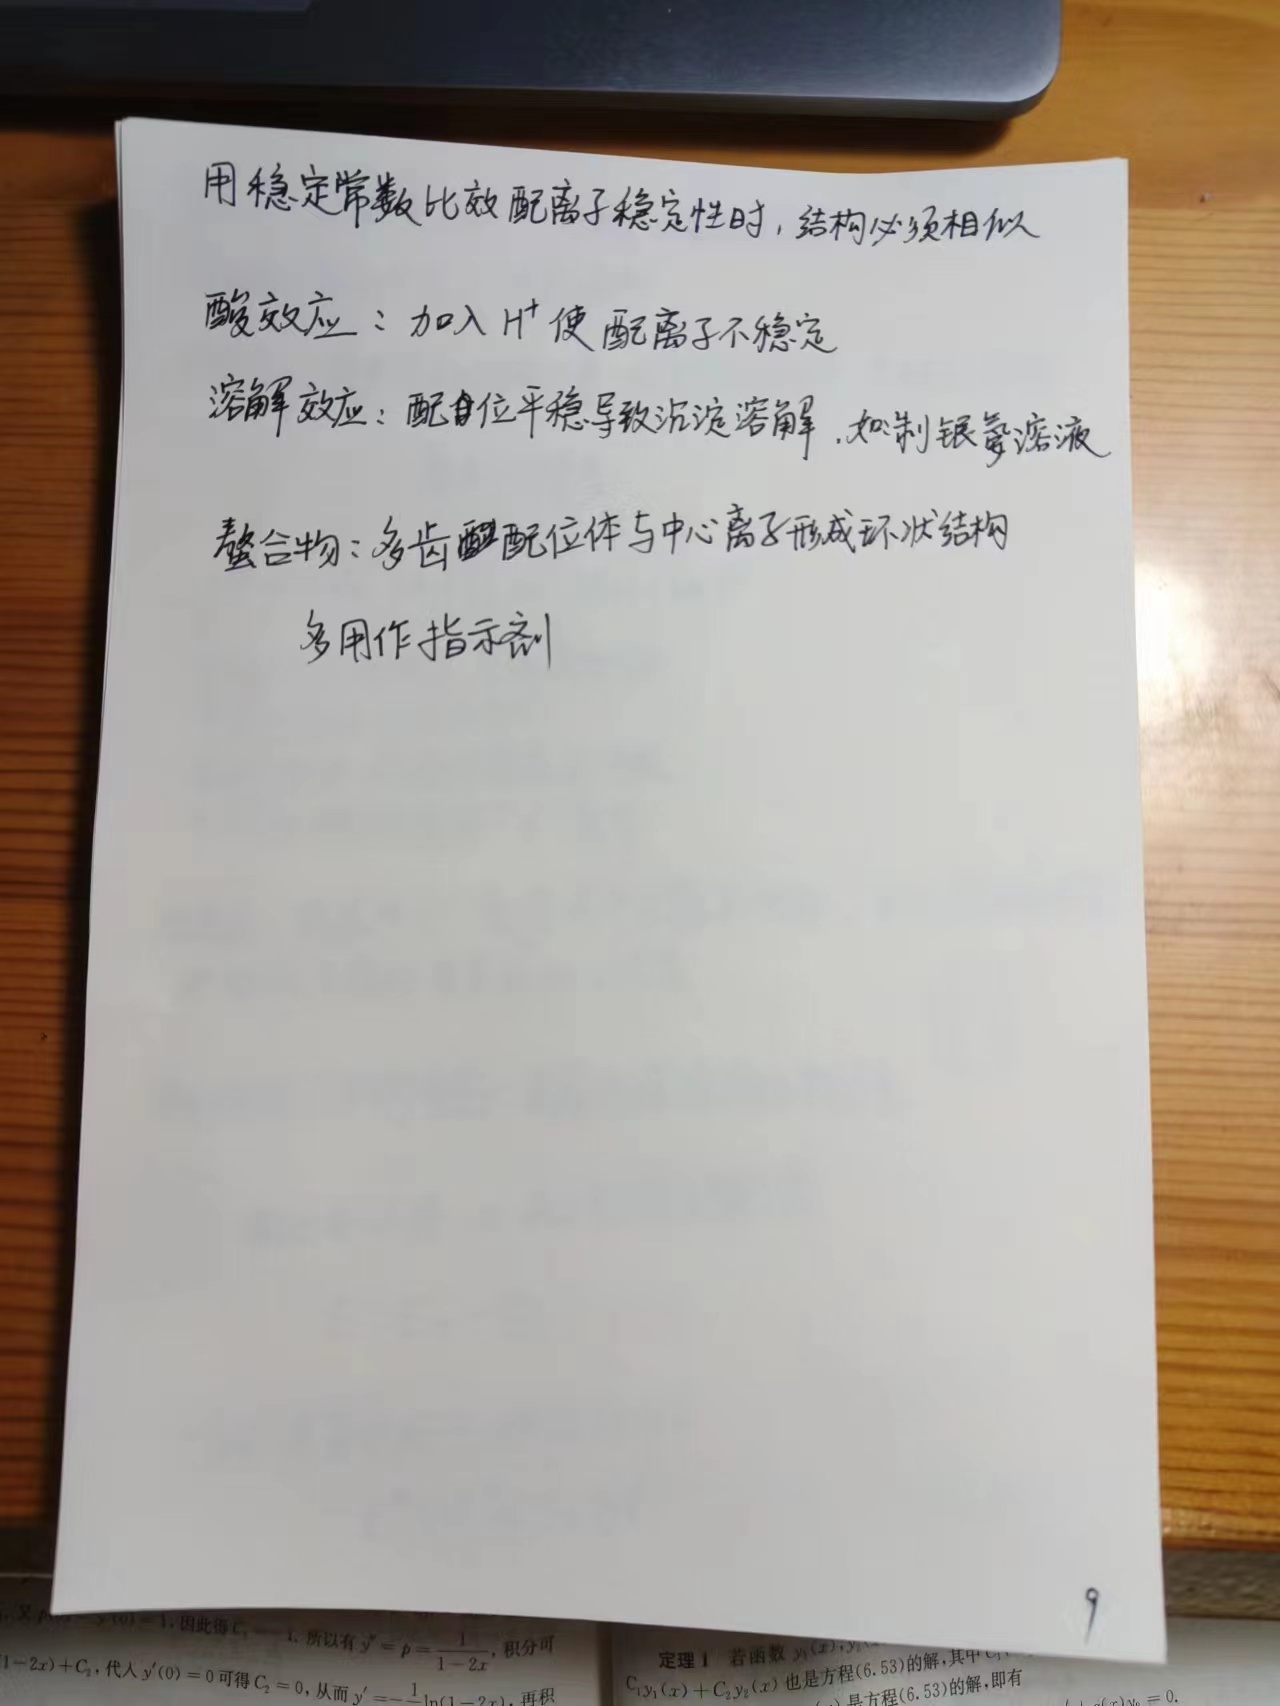 用稳定常数比效配离子稳定性时，结构必须相似
酸效应：加入H⁺使配离子不稳定
溶解效应：配位平稳导致沉淀溶解，如制银氨溶液
螯合物：多齿配位体与中心离子形成环状结构
多用作指示剂
9
因此得C₁ 1. 所以有y″=p=1/(1-2x), 积分可
1-2x)+C₂, 代人y′(0)=0可得C₂=0, 从而y′=-1/2 ln(1-2x), 再积
定理1 若函数y₁(x),y₂(x
C₁y₁(x)+C₂y₂(x)也是方程(6.53)的解, 其中C
是方程(6.53)的解, 即有